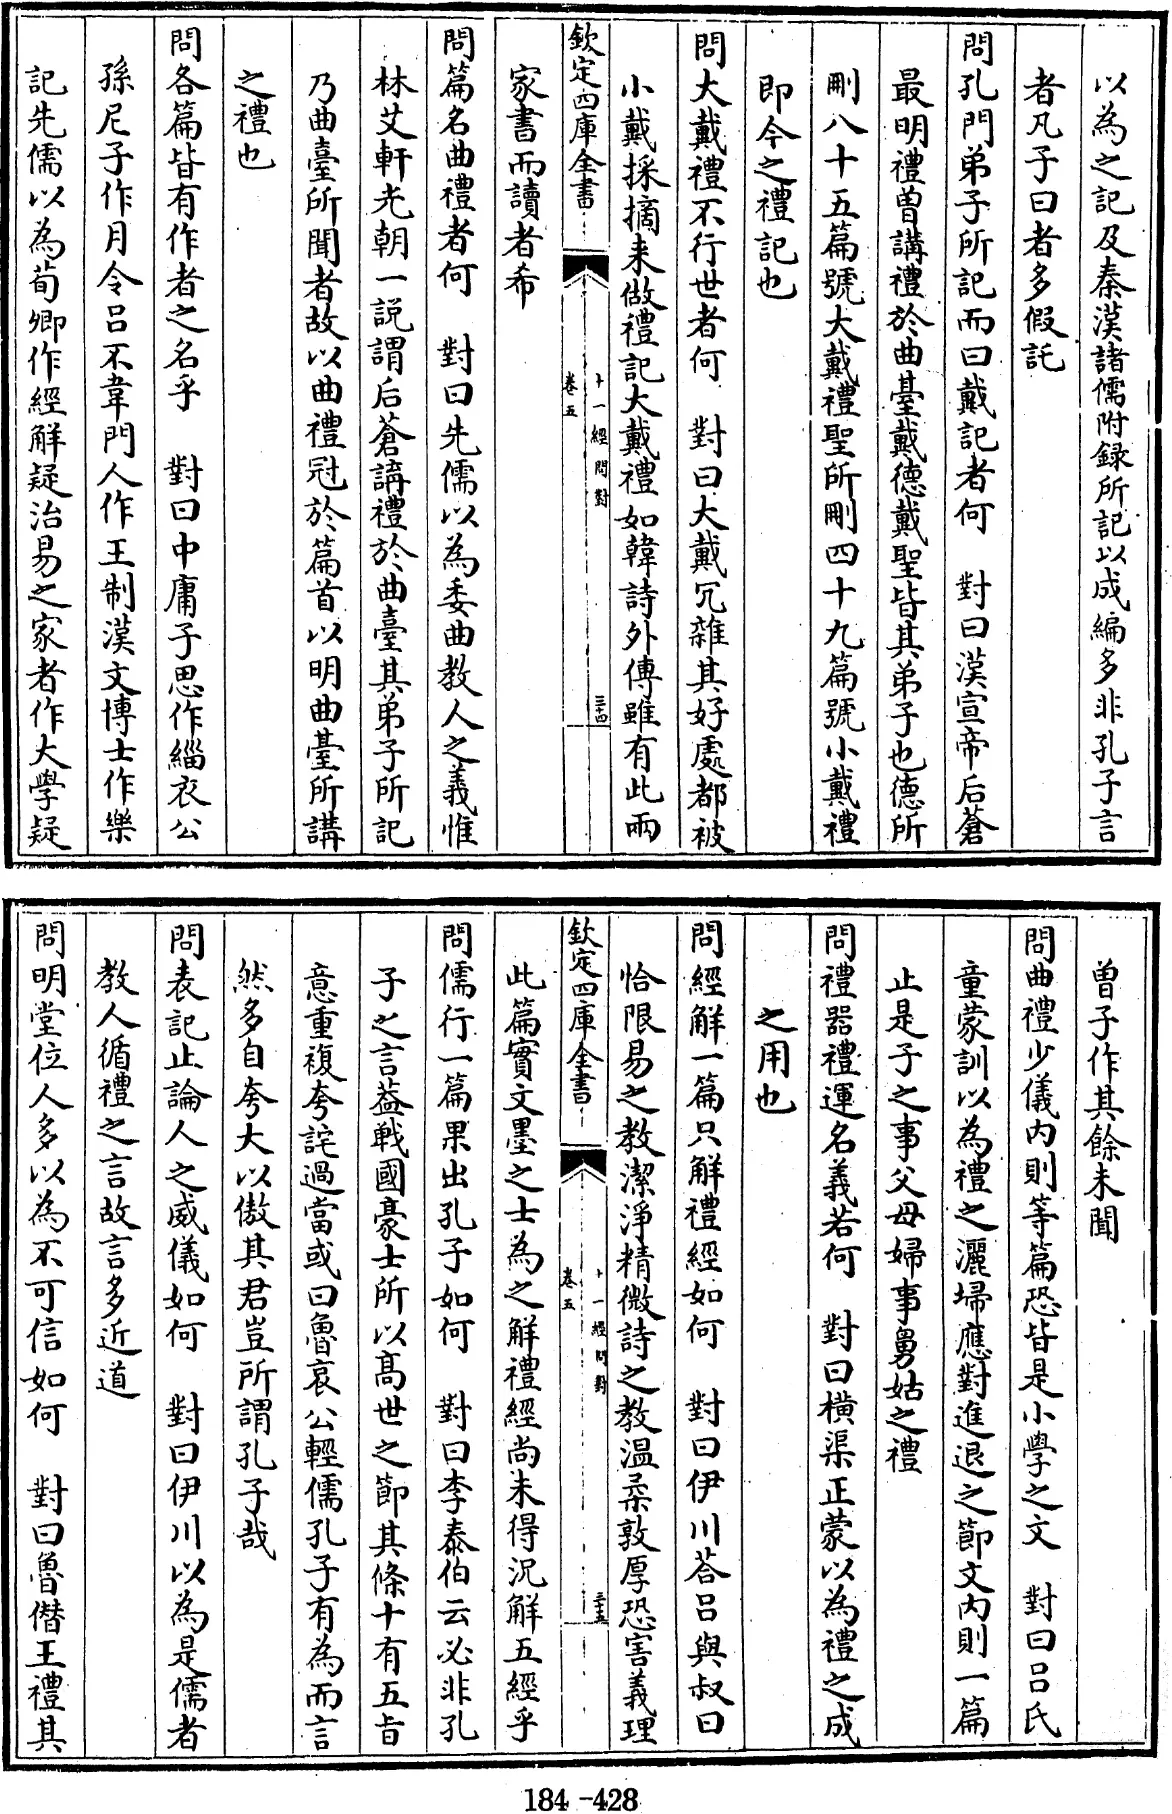 以為之記及秦漢諸儒附錄所記以成編多非孔子言
者凡子曰者多假託
問孔門弟子所記而曰戴記者何　對曰漢宣帝后蒼
最明禮曽講禮於曲臺戴德戴聖皆其弟子也德所
刪八十五篇號大戴禮聖所刪四十九篇號小戴禮
即今之禮記也
問大戴禮不行世者何　對曰大戴冗雜其好處都被
小戴採摘來做禮記大戴禮如韓詩外傳雖有此兩
欽定四庫全書
十一經問對
卷五
三十四
家書而讀者希
問篇名曲禮者何　對曰先儒以為委曲教人之義惟
林艾軒光朝一説謂后蒼講禮於曲臺其弟子所記
乃曲臺所聞者故以曲禮冠於篇首以明曲臺所講
之禮也
問各篇皆有作者之名乎　對曰中庸子思作緇衣公
孫尼子作月令吕不韋門人作王制漢文博士作樂
記先儒以為荀卿作經解疑治易之家者作大學疑
曽子作其餘未聞
問曲禮少儀内則等篇恐皆是小學之文　對曰吕氏
童蒙訓以為禮之灑埽應對進退之節文内則一篇
止是子之事父母婦事舅姑之禮
問禮器禮運名義若何　對曰横渠正蒙以為禮之成
之用也
問經解一篇只解禮經如何　對曰伊川荅吕與叔曰
恰限易之教潔淨精微詩之教温柔敦厚恐害義理
欽定四庫全書
十一經問對
卷五
三十五
此篇實文墨之士為之解禮經尚未得況解五經乎
問儒行一篇果出孔子如何　對曰李泰伯云必非孔
子之言葢戰國豪士所以髙世之節其條十有五㫖
意重複夸詫過當或曰魯哀公輕儒孔子有為而言
然多自夸大以傲其君豈所謂孔子哉
問表記止論人之威儀如何　對曰伊川以為是儒者
教人循禮之言故言多近道
問明堂位人多以為不可信如何　對曰魯僭王禮其
184-428